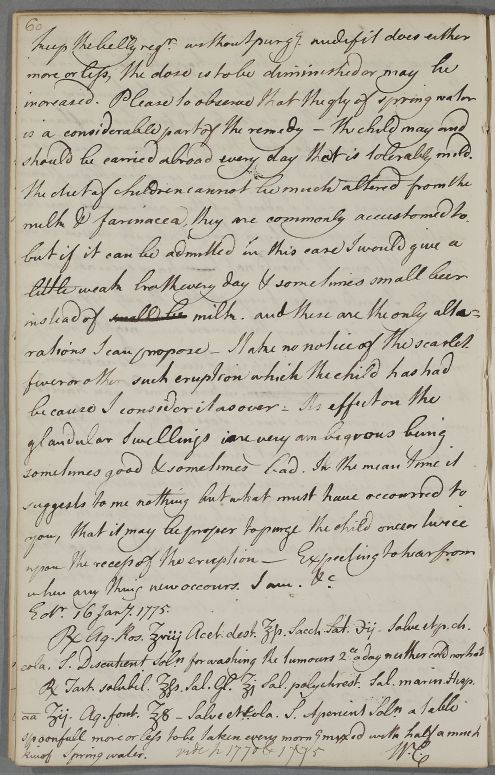 60
keep the belly regr. without purgg. and if it does either
more or less, the dose is to be diminished or may be
increased. Please to observe that the qty of spring water
is a considerable part of the remedy – the child may and
should be carried abroad every day that is tolerably mild.
the diet of children cannot be much altered from the
milk & farinacea they are commonly accustomed to.
but if it can be admitted in this case I would give a
little weak broth every day & sometimes small beer
instead of small be milk. and these are the only alte=
rations I can propose – I take no notice of the scarlet
fever or other such eruption which the child has had
because I consider it as over = Its effect on the
glandular swellings are very ambiguous being
sometimes good & sometimes bad. In the mean time it
suggests to me nothing but what must have occurred to
you, that it may be proper to purge the child once or twice
upon the recess of the eruption – Expecting to hear from
when any thing new occurs. I am. &c
Edr. 16 Jany 1775.
℞ Aq. Ros. ʒviij Acet. dest. ʒß. Sacch. Sat. ℈ij. Solve et p. ch.
cola. S. Discutient Soln for washing the tumours 2ce a day neither cold nor hot
℞ Tart. solubil. ʒß. Sal. Gl. ʒj Sal. polychrest. Sal. marin. Hisp.
aa ʒij. Aq. font. ʒ8 – Solve et cola. S. Aperient Soln a table
spoonfull more or less to be taken every morng mixed with half a mutch
kin of Spring water.
vide p 1770 & 1775
WC